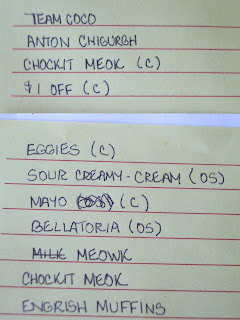 TEAM COCO
ANTON CHIGURGH
CHOCKIT MEOK (C)
$1 OFF (C)
EGGIES (C)
SOUR CREAMY-CREAM (OS)
MAYO (C)
BELLATORIA (OS)
MILK MEOWK
CHOCKIT MEOK
ENGRISH MUFFINS